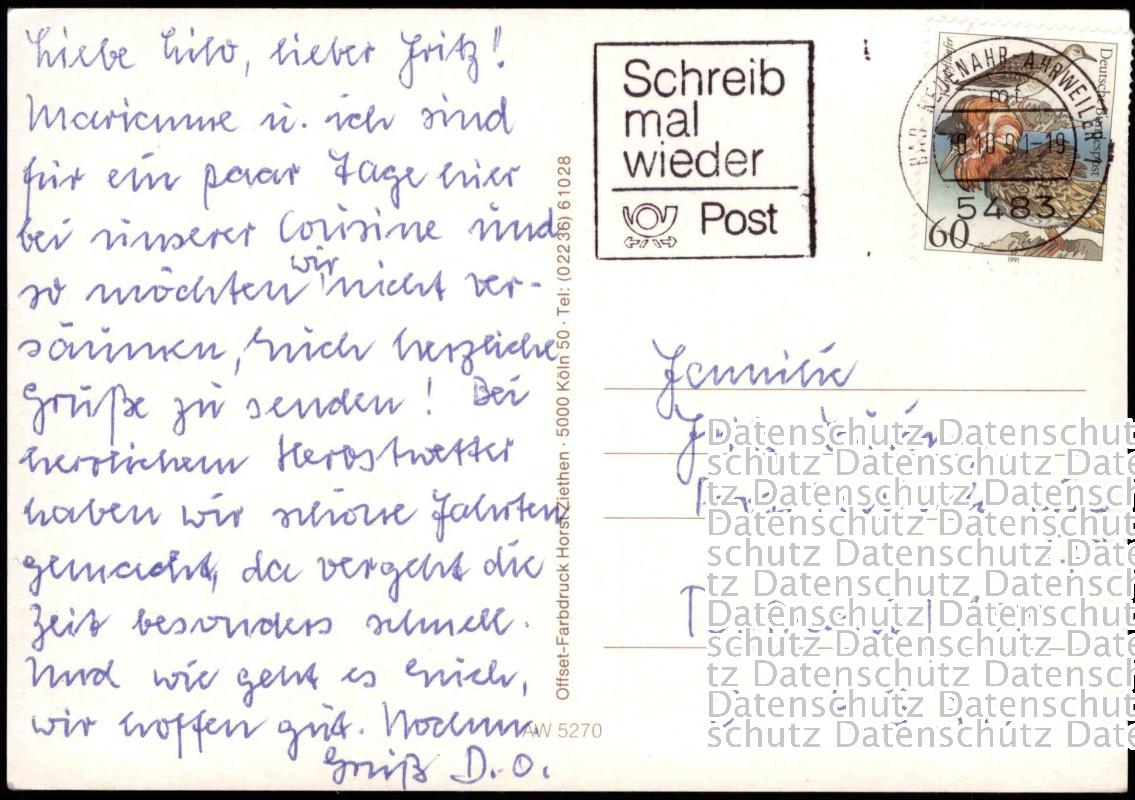 Liebe Hilo, lieber Fritz!
Marianne u. ich sind
für ein paar Tage hier
bei unserer Cousine und
so möchten wir nicht ver-
säumen, Euch herzliche
Grüße zu senden! Bei
herrlichem Herbstwetter
haben wir schöne Fahrten
gemacht, da vergeht die
Zeit besonders schnell.
Und wie geht es Euch,
wir hoffen gut. Nochm.
Gruß D.O.
Offset-Farbdruck Horst Ziethen · 5000 Köln 50 · Tel: (02236) 61028
AW 5270
Schreib
mal
wieder
Post
Deutsche Bundespost
BAD NEUENAHR-AHRWEILER 1
mf
10.91-19
5483
60
1991
Familie
Datenschutz Datenschut
schutz Datenschutz Date
tz Datenschutz Datensch
Datenschutz Datenschut
schutz Datenschutz Date
tz Datenschutz Datensch
Datenschutz Datenschut
schutz Datenschutz Date
tz Datenschutz Datensch
Datenschutz Datenschut
schutz Datenschutz Date